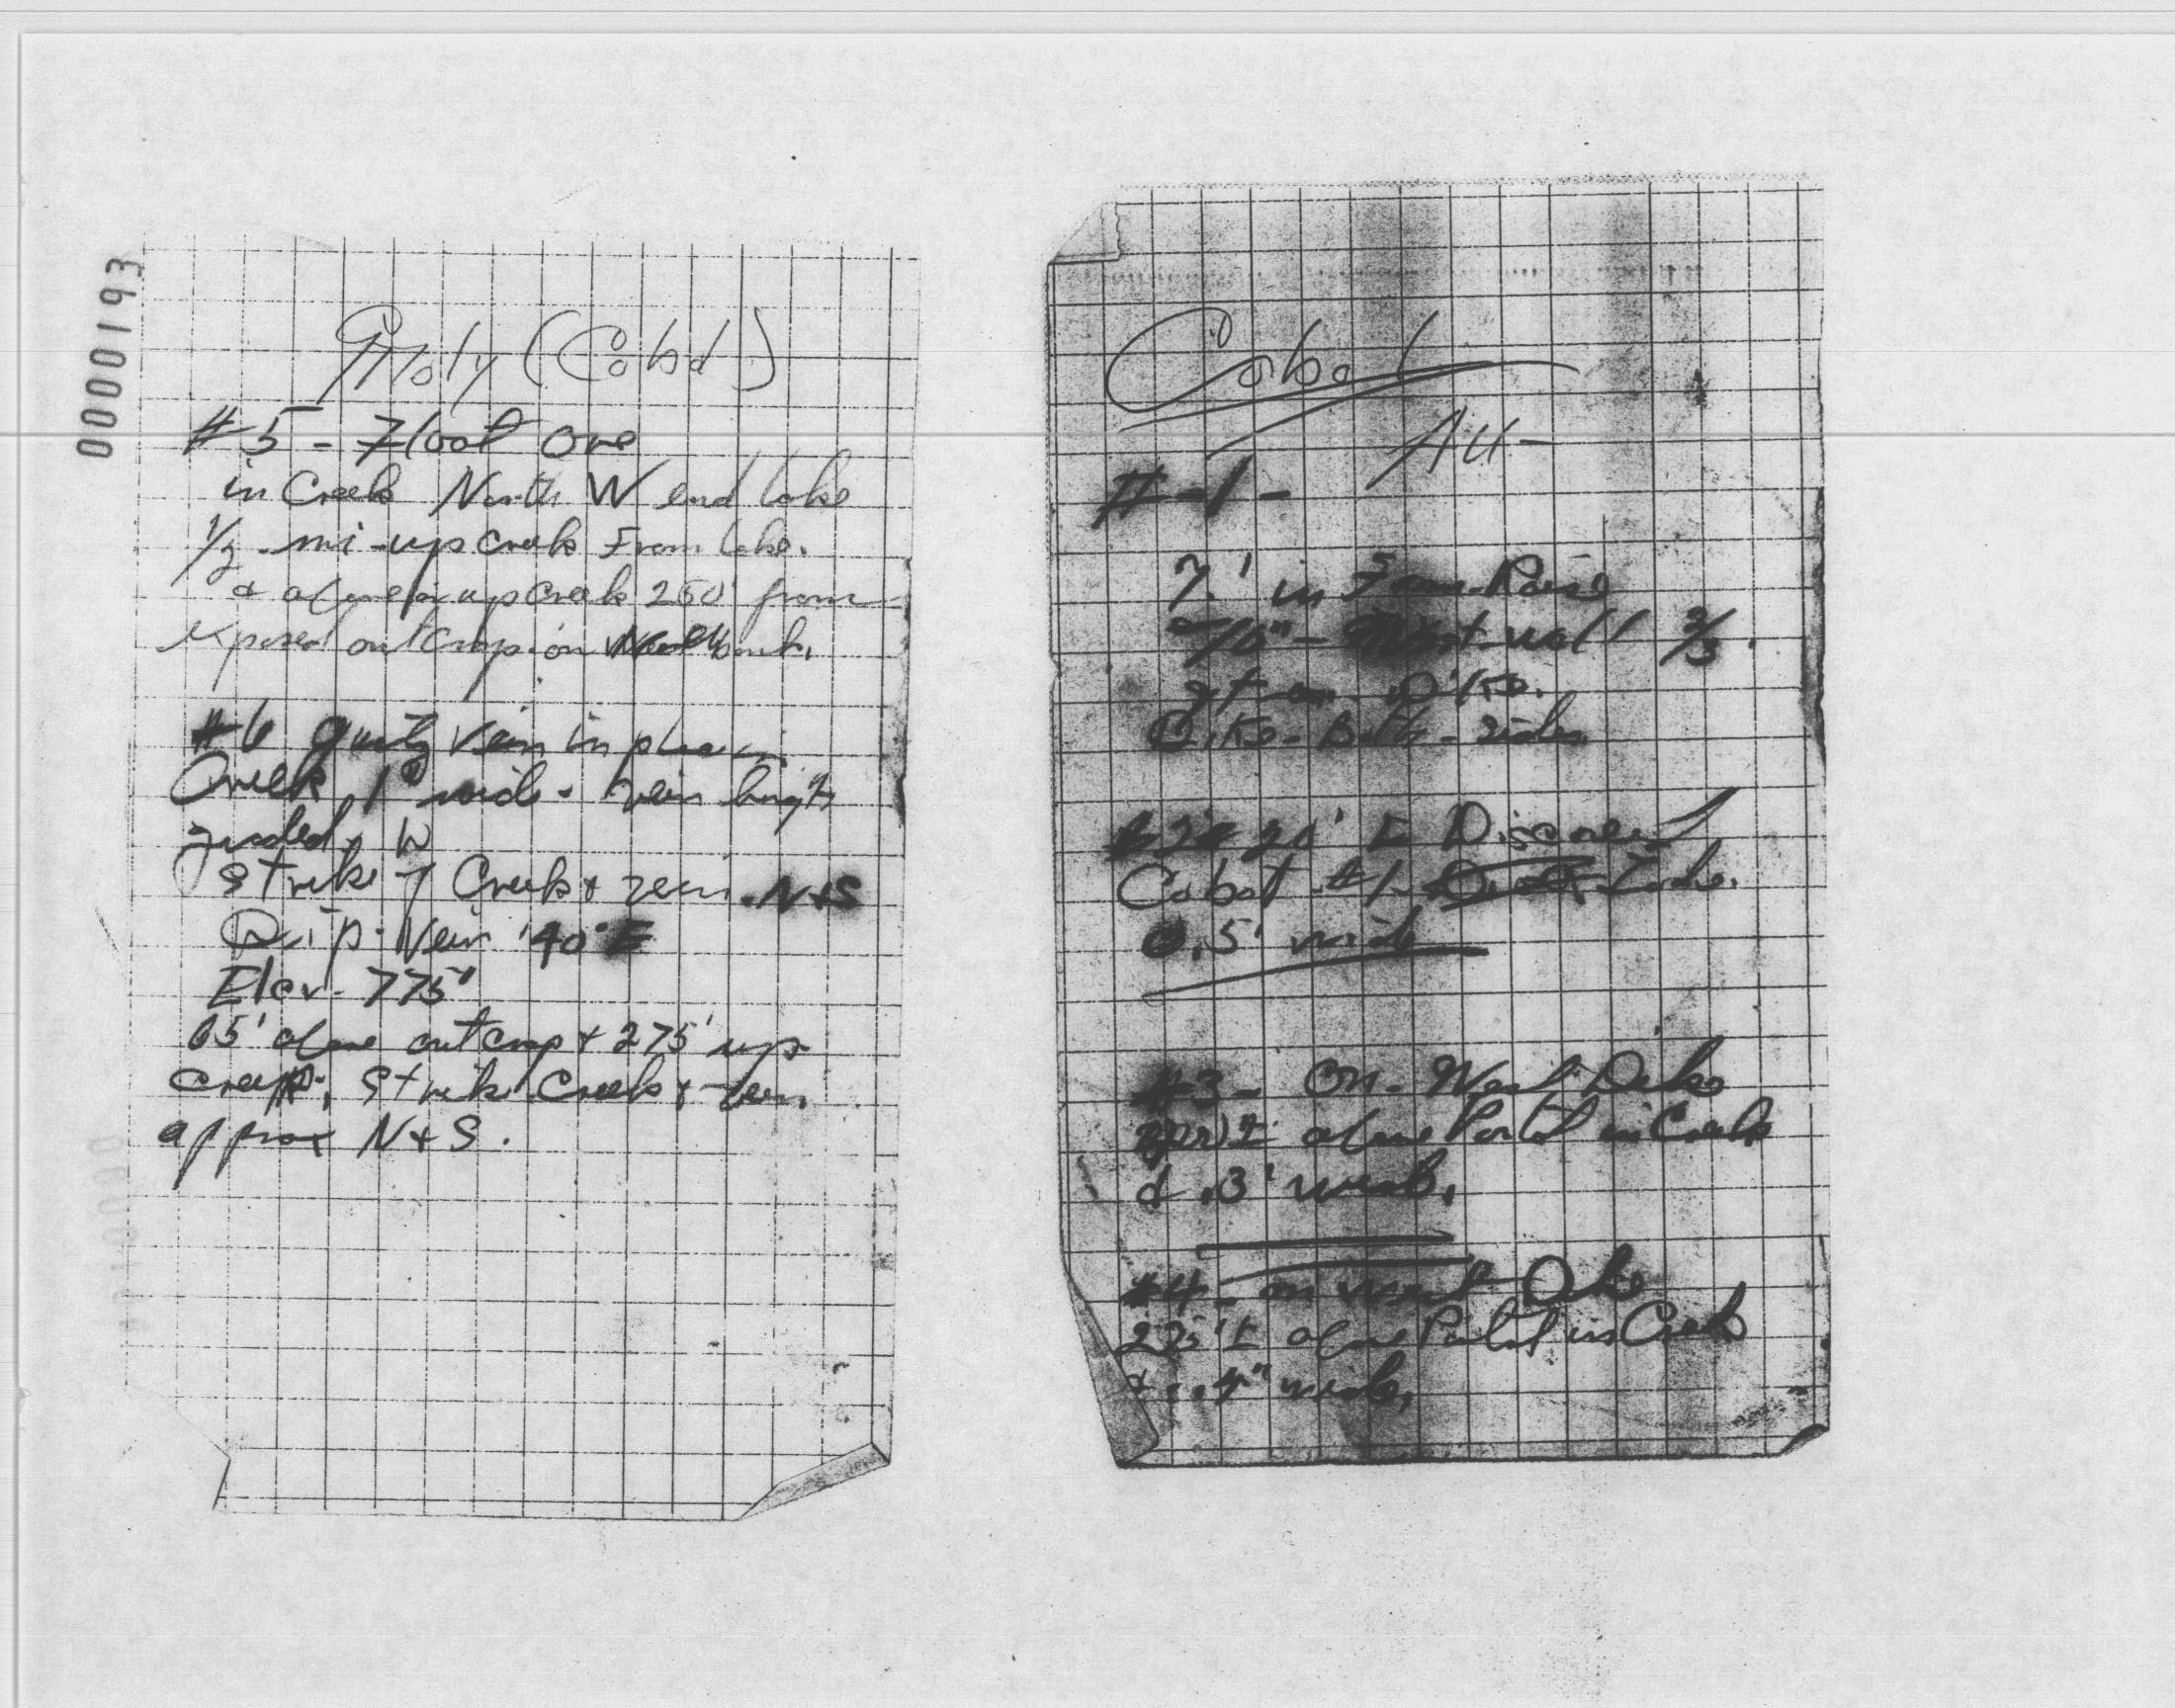 0000193
Moly (Cobal)
#5 - Float Ore
in Creek North W end lake
1/2 - mi - up Creek From lake.
& above up Creek 250' from
exposed outcrop on bank.
#6 quartz vein in place in
Creek 1" wide - vein
W
Strike of Creek & vein - N & S
Dip - Vein 40° E
Elev - 775'
above outcrop & 275' up
Creek, Strike Creek & vein
approx N & S.
Cobal
Au -
# -1 -
7' in Raise
wall 2/3
Dike.
Dike - Both - sides
20' E Discovery
Cobat #1
0.5' wide
#3 - On - West Dike
above Portal in Creek
& .3' wide.
#4 - on West Dike
275' ± above Portal in Creek
wide.